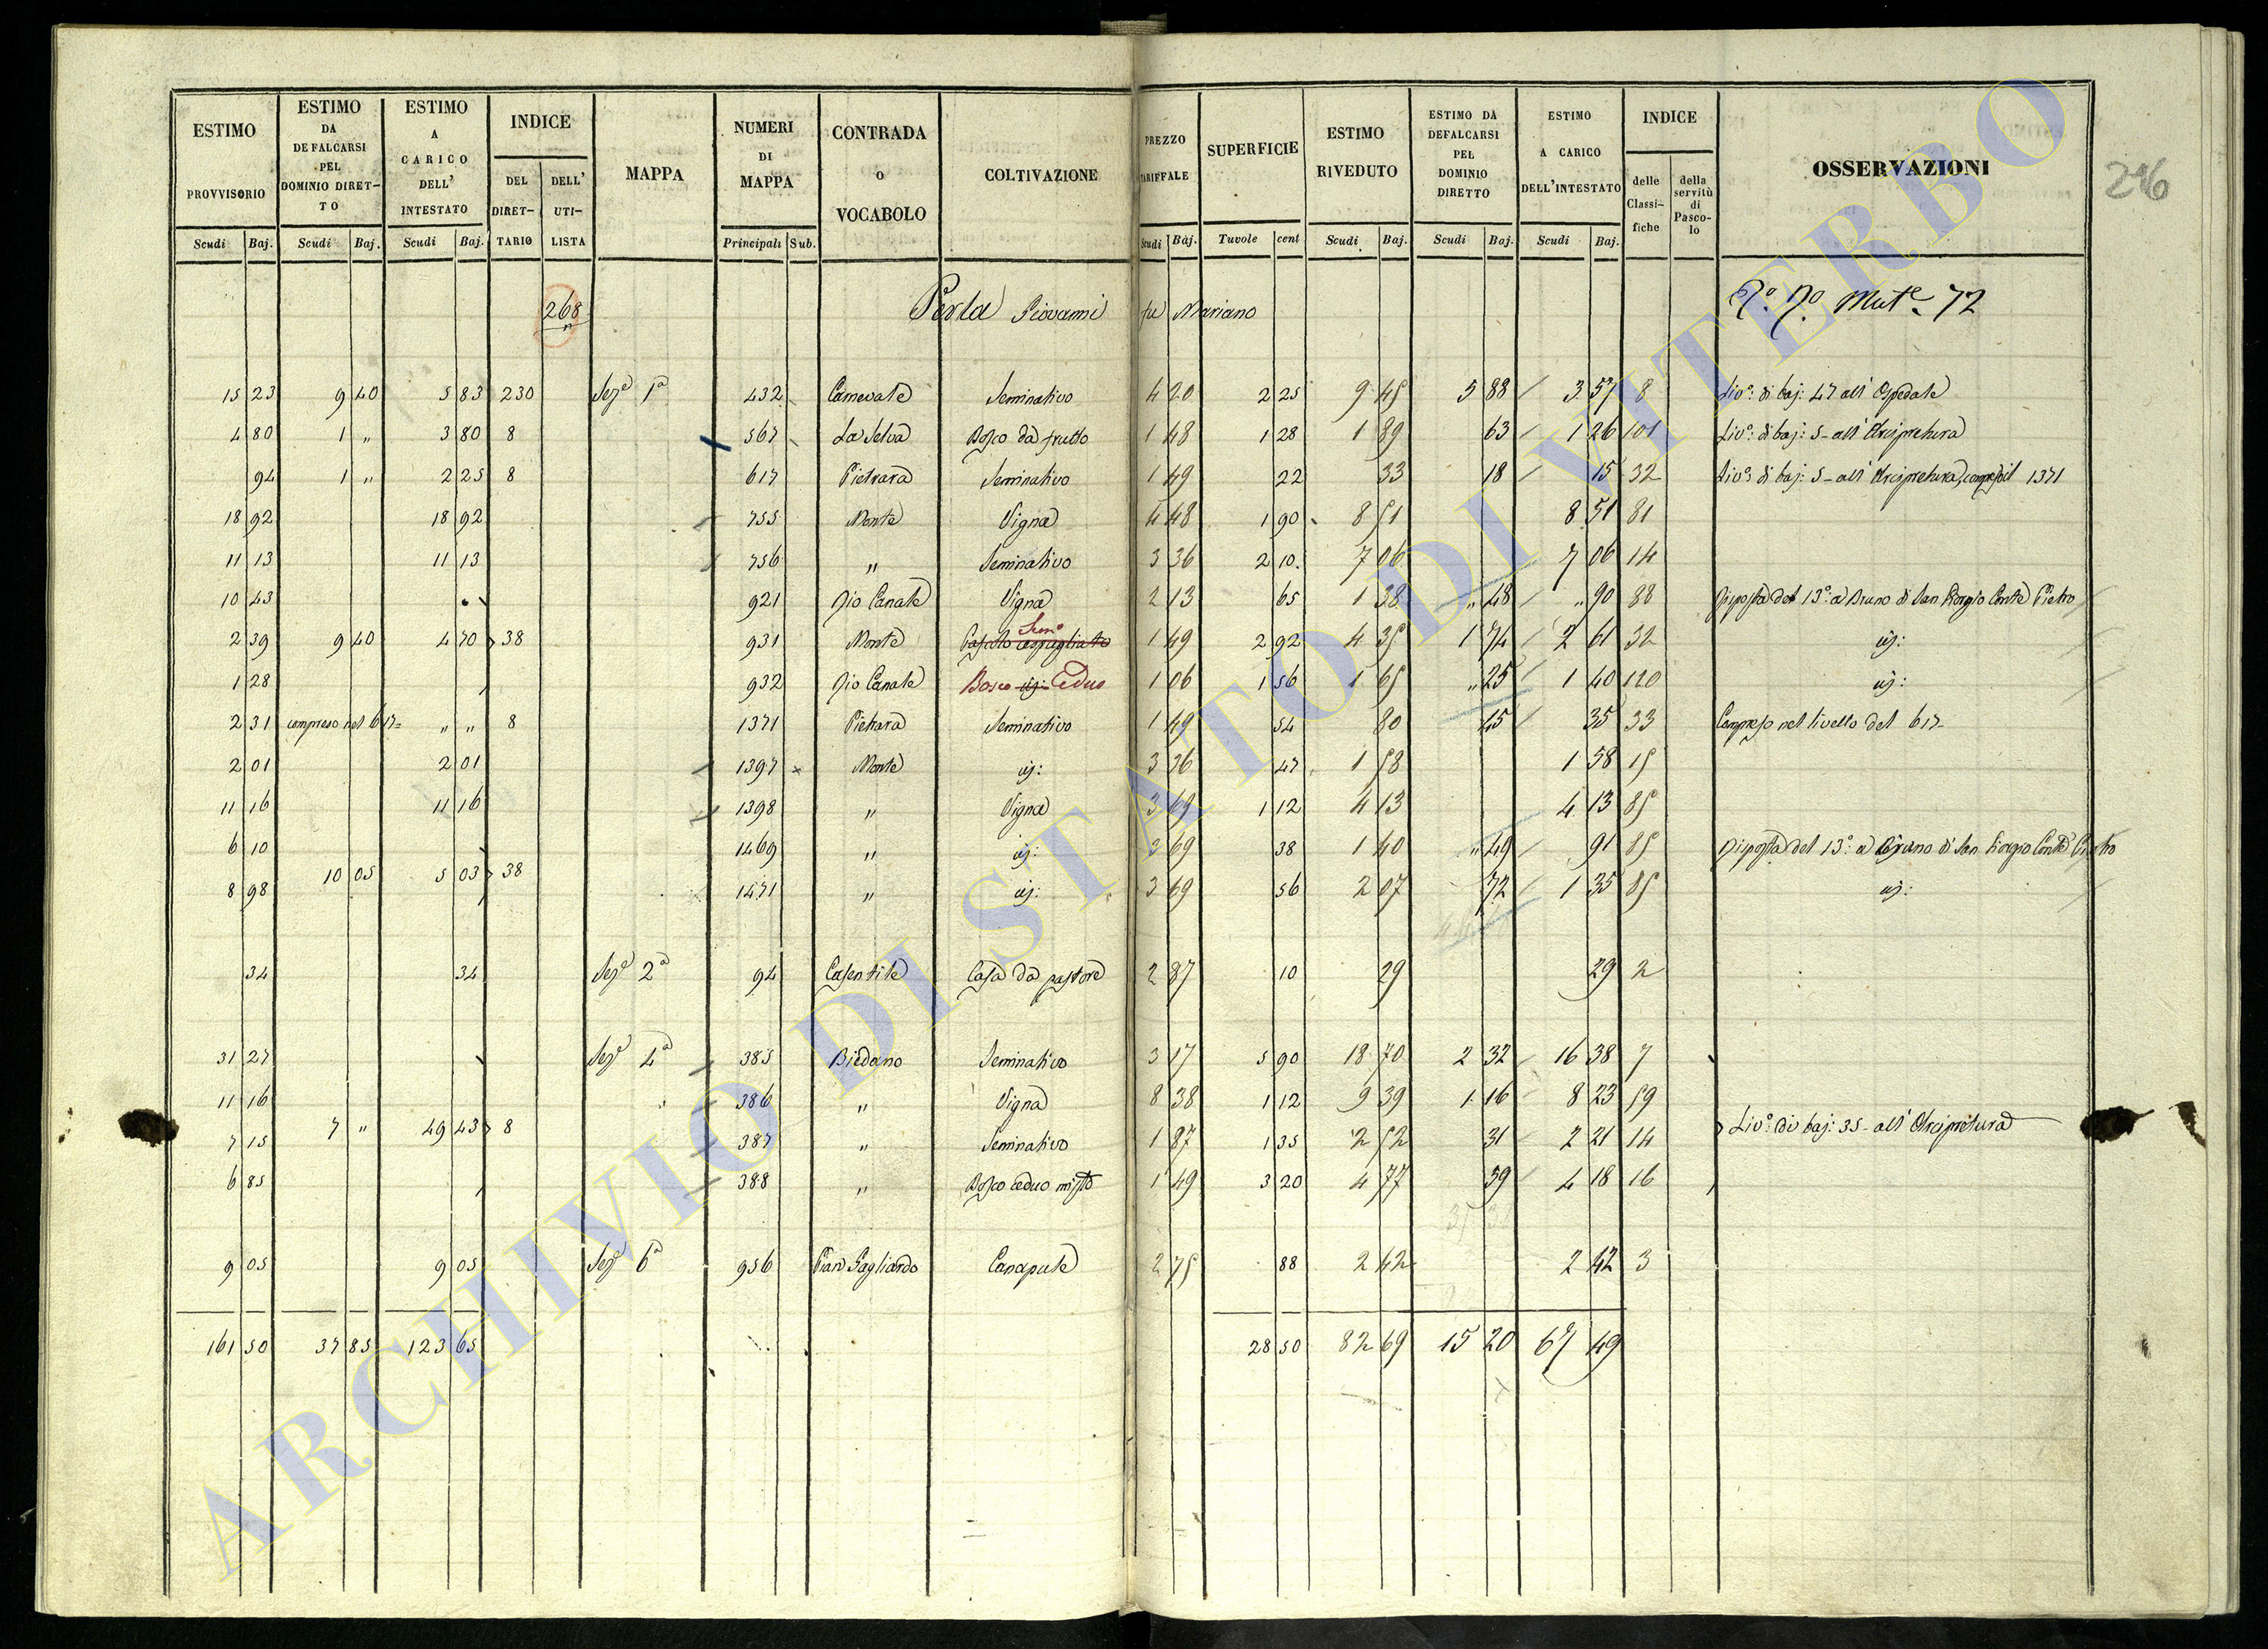 ESTIMO PROVVISORIO | ESTIMO DA DEFALCARSI PEL DOMINIO DIRETTO | ESTIMO A CARICO DELL' INTESTATO | INDICE | MAPPA | NUMERI DI MAPPA | CONTRADA o VOCABOLO | COLTIVAZIONE | PREZZO TARIFFALE | SUPERFICIE | ESTIMO RIVEDUTO | ESTIMO DA DEFALCARSI PEL DOMINIO DIRETTO | ESTIMO A CARICO DELL'INTESTATO | INDICE | OSSERVAZIONI
DEL DIRETTARIO | DELL' UTILISTA | delle Classifiche | della servitù di Pascolo
Scudi | Baj. | Scudi | Baj. | Scudi | Baj. | Principali | Sub. | Scudi | Baj. | Tavole | cent | Scudi | Baj. | Scudi | Baj. | Scudi | Baj.
216
268 Perla Giovanni fu Mariano Mut.e 72
15 23 | 9 40 | 5 83 | 230 | Sez.e 1a | 432 | Carnevale | Seminativo | 4 20 | 2 25 | 9 45 | 5 88 | 3 57 | 8 | Liv.o: di baj: 47 all' Ospedale
4 80 | 1 " | 3 80 | 8 | 567 | La Selva | Bosco da frutto | 1 48 | 1 28 | 1 89 | 63 | 1 26 | 101 | Liv.o: di baj: 5 - all' Arcipretura
94 | 1 " | 2 25 | 8 | 617 | Pietrara | Seminativo | 1 49 | 22 | 33 | 18 | 15 | 32 | Liv.o: di baj: 5 - all' Arcipretura, compreso il 1371
18 92 | 18 92 | 755 | Monte | Vigna | 4 48 | 1 90 | 8 51 | 8 51 | 81
11 13 | 11 13 | 756 | " | Seminativo | 3 36 | 2 10 | 7 06 | 7 06 | 14
10 43 | 921 | Rio Canale | Vigna | 2 13 | 65 | 1 38 | " 48 | " 90 | 88 | Risposta del 13.o: a Bruno di San Giorgio Conte Pietro
2 39 | 9 40 | 4 70 | 38 | 931 | Monte | Pascolo cespugliato Sem.o | 1 49 | 2 92 | 4 35 | 1 74 | 2 61 | 32 | id:
1 28 | 932 | Rio Canale | Bosco id: Ceduo | 1 06 | 1 56 | 1 65 | " 25 | 1 40 | 110 | id:
2 31 | compreso nel 617 | " " | 8 | 1371 | Pietrara | Seminativo | 1 49 | 54 | 80 | 45 | 35 | 33 | Compreso nel livello del 617
2 01 | 2 01 | 1397 | Monte | id: | 3 36 | 47 | 1 58 | 1 58 | 15
11 16 | 11 16 | 1398 | " | Vigna | 3 69 | 1 12 | 4 13 | 4 13 | 85
6 10 | 1469 | " | id: | 3 69 | 38 | 1 40 | " 49 | 91 | 85 | Risposta del 13.o: a Bruno di San Giorgio Conte Pietro
10 05 | 5 03 | 38
8 98 | 1471 | " | id: | 3 69 | 56 | 2 07 | 72 | 1 35 | 85 | id:
34 | 34 | Sez.e 2a | 94 | Casentile | Casa da pastore | 2 87 | 10 | 29 | 29 | 2
31 27 | Sez.e 4a | 385 | Biedano | Seminativo | 3 17 | 5 90 | 18 70 | 2 32 | 16 38 | 7
11 16 | 386 | " | Vigna | 8 38 | 1 12 | 9 39 | 1 16 | 8 23 | 59
7 " | 49 43 | 8 | Liv.o: di baj: 35 - all' Arcipretura
7 15 | 387 | " | Seminativo | 1 87 | 1 35 | 2 52 | 31 | 2 21 | 14
6 85 | 388 | " | Bosco ceduo misto | 1 49 | 3 20 | 4 77 | 59 | 4 18 | 16
9 05 | 9 05 | Sez.e 6a | 956 | Pian Gagliardo | Canapule | 2 75 | 88 | 2 42 | 2 42 | 3
161 50 | 37 85 | 123 65 | 28 50 | 82 69 | 15 20 | 67 49
ARCHIVIO DI STATO DI VITERBO